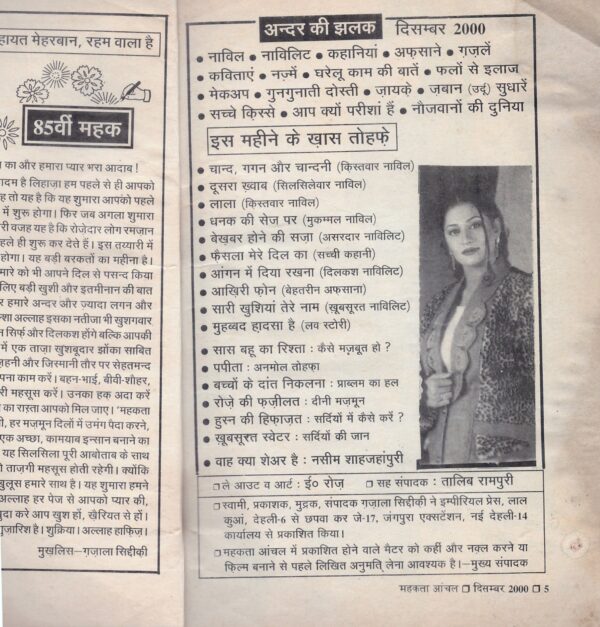 हायत मेहरबान, रहम वाला है
85वीं महक
का और हमारा प्यार भरा आदाब !
दम है लिहाज़ा हम पहले से ही आपको
ह तो यह है कि यह शुमारा आपको पहले
में शुरू होगा। फिर जब अगला शुमारा
री वजह यह है कि रोज़ेदार लोग रमज़ान
हले ही शुरू कर देते हैं। इस तय्यारी में
होगा। यह बड़ी बरकतों का महीना है।
मारे को भी आपने दिल से पसन्द किया
लिए बड़ी खुशी और इतमीनान की बात
र हमारे अन्दर और ज़्यादा लगन और
शा अल्लाह इसका नतीजा भी खुशगवार
न सिर्फ़ और दिलकश होंगे बल्कि आपकी
में एक ताज़ा खुशबूदार झोंका साबित
ज़हनी और जिस्मानी तौर पर सेहतमन्द
पना काम करें। बहन-भाई, बीवी-शौहर,
री महसूस करें। उनका हक़ अदा करें
का रास्ता आपको मिल जाए। 'महकता
ी, हर मज़मून दिलों में उमंग पैदा करने,
एक अच्छा, कामयाब इन्सान बनाने का
यह सिलसिला पूरी आबोताब के साथ
ो ताज़गी महसूस होती रहेगी। क्योंकि
खुलूस हमारे साथ है। यह शुमारा हमने
अल्लाह हर पेज से आपको प्यार की,
ख़ुदा करे आप खुश हों, ख़ैरियत से हों।
गुज़ारिश है। शुक्रिया। अल्लाह हाफ़िज़।
मुख़लिस-गज़ाला सिद्दीकी
अन्दर की झलक दिसम्बर 2000
• नाविल • नाविलिट • कहानियां • अफ़साने • ग़ज़लें
• कविताएं • नज़्में • घरेलू काम की बातें • फलों से इलाज
• मेकअप • गुनगुनाती दोस्ती • ज़ायके • ज़बान (उर्दू) सुधारें
• सच्चे क़िस्से • आप क्यों परीशां हैं • नौजवानों की दुनिया
इस महीने के ख़ास तोहफ़े
• चान्द, गगन और चान्दनी (क़िस्तवार नाविल)
• दूसरा ख्वाब (सिलसिलेवार नाविल)
• लाला (क़िस्तवार नाविल)
• धनक की सेज पर (मुकम्मल नाविल)
• बेख़बर होने की सज़ा (असरदार नाविलिट)
• फ़ैसला मेरे दिल का (सच्ची कहानी)
• आंगन में दिया रखना (दिलकश नाविलिट)
• आख़िरी फ़ोन (बेहतरीन अफ़साना)
• सारी खुशियां तेरे नाम (ख़ूबसूरत नाविलिट)
• मुहब्बद हादसा है (लव स्टोरी)
• सास बहू का रिश्ता : कैसे मज़बूत हो ?
• पपीता : अनमोल तोहफ़ा
• बच्चों के दांत निकलना : प्राब्लम का हल
• रोज़े की फज़ीलत : दीनी मज़मून
• हुस्न की हिफ़ाज़त : सर्दियों में कैसे करें ?
• ख़ूबसूरत स्वेटर : सर्दियों की जान
• वाह क्या शेअर है : नसीम शाहजहांपुरी
❏ ले आउट व आर्ट : ई० रोज़ ❏ सह संपादक : तालिब रामपुरी
❏ स्वामी, प्रकाशक, मुद्रक, संपादक गज़ाला सिद्दीकी ने इम्पीरियल प्रेस, लाल
कुआं, देहली-6 से छपवा कर जे-17, जंगपुरा एक्सटेंशन, नई देहली-14
कार्यालय से प्रकाशित किया।
❏ महकता आंचल में प्रकाशित होने वाले मैटर को कहीं और नक़ल करने या
फिल्म बनाने से पहले लिखित अनुमति लेना आवश्यक है।–मुख्य संपादक
महकता आंचल ❏ दिसम्बर 2000 ❏ 5